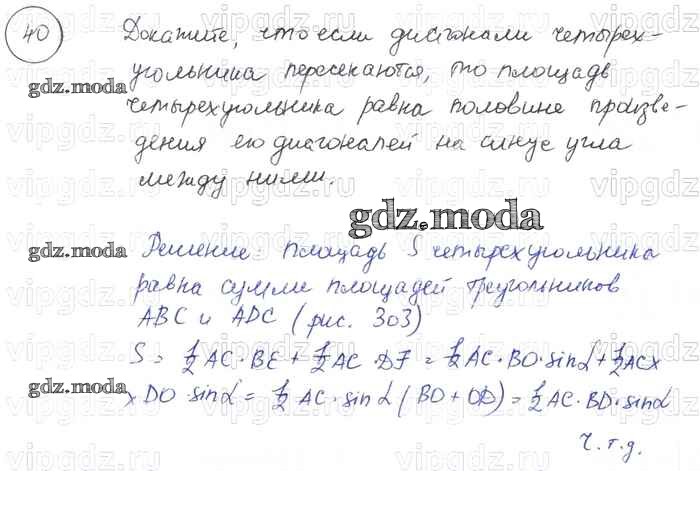 40
Докажите, что если диагонали четырех-
угольника пересекаются, то площадь
четырехугольника равна половине произве-
дения его диагоналей на синус угла
между ними.
gdz.moda
gdz.moda
Решение: площадь S четырехугольника
gdz.moda
равна сумме площадей треугольников
ABC и ADC (рис. 303)
S = 1/2 AC · BE + 1/2 AC · DF = 1/2 AC · BO · sinα + 1/2 AC x
gdz.moda
x DO · sinα = 1/2 AC · sinα (BO + OD) = 1/2 AC · BD · sinα
ч.т.д.
vipgdz.ru